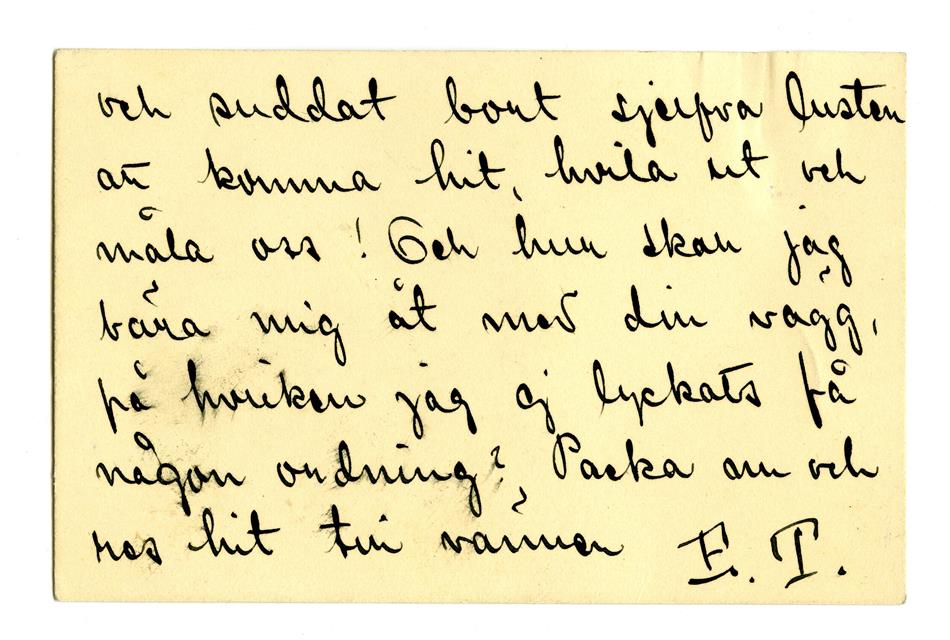 och suddat bort sjelfva lusten
att komma hit, hvila ut och
måla oss! Och hur skall jag
bära mig åt med din vägg,
på hvilken jag ej lyckats få
någon ordning? Packa nu och
res hit till vännen E. T.